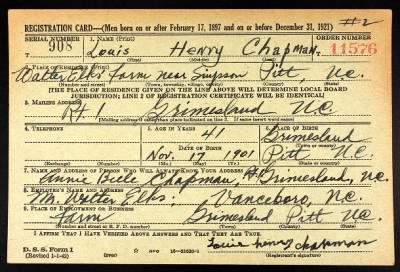 REGISTRATION CARD—(Men born on or after February 17, 1897 and on or before December 31, 1921) #2
SERIAL NUMBER 1. NAME (Print) ORDER NUMBER
908 Louis Henry Chapman. 11576
(First) (Middle) (Last)
2. PLACE OF RESIDENCE (Print)
Walter Elks Farm near Simpson Pitt, N.C.
(Number and street) (Town, township, village, or city) (County) (State)
[THE PLACE OF RESIDENCE GIVEN ON THE LINE ABOVE WILL DETERMINE LOCAL BOARD
JURISDICTION; LINE 2 OF REGISTRATION CERTIFICATE WILL BE IDENTICAL]
3. MAILING ADDRESS
R#1 Grimesland N.C.
[Mailing address if other than place indicated on line 2. If same insert word same]
4. TELEPHONE 5. AGE IN YEARS 6. PLACE OF BIRTH
41 Grimesland
DATE OF BIRTH (Town or county)
Nov. 17 1901 Pitt N.C.
(Exchange) (Number) (Mo.) (Day) (Yr.) (State or country)
7. NAME AND ADDRESS OF PERSON WHO WILL ALWAYS KNOW YOUR ADDRESS
Chapman, #1 Grimesland, N.C.
8. EMPLOYER'S NAME AND ADDRESS
Mr. Walter Elks, Vanceboro, N.C.
9. PLACE OF EMPLOYMENT OR BUSINESS
Farm Grimesland Pitt N.C.
(Number and street or R. F. D. number) (Town) (County) (State)
I AFFIRM THAT I HAVE VERIFIED ABOVE ANSWERS AND THAT THEY ARE TRUE.
D. S. S. Form 1
(Revised 1-1-42) (over) 16—21630-1 Louis Henry Chapman
(Registrant's signature)